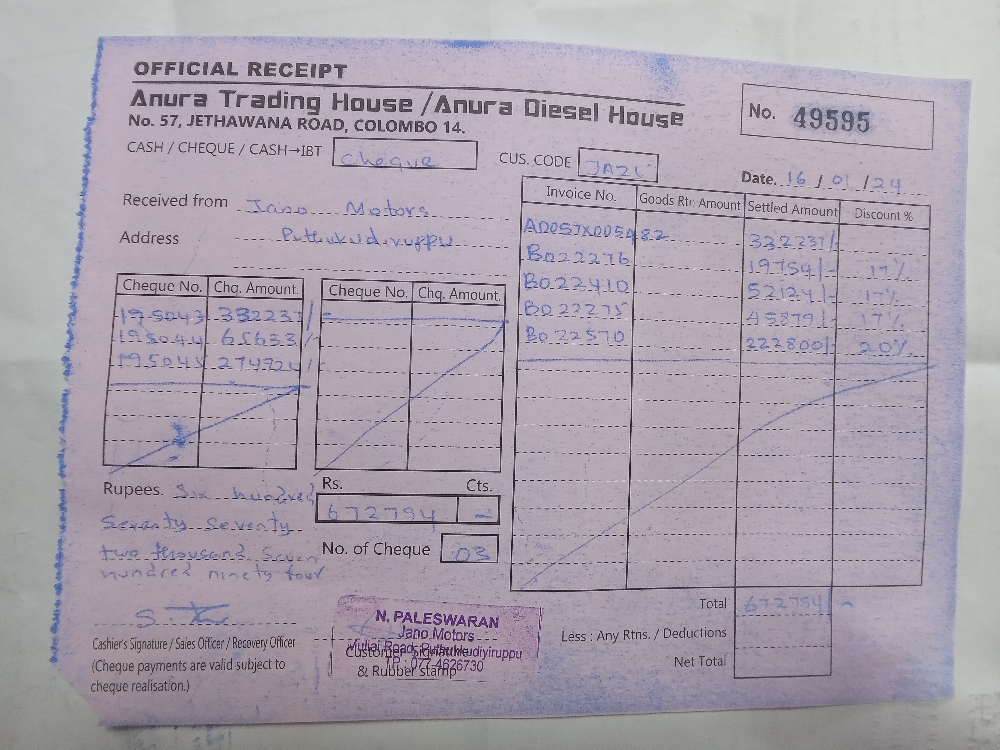 OFFICIAL RECEIPT
Anura Trading House /Anura Diesel House
No. 57, JETHAWANA ROAD, COLOMBO 14.
No. 49595
CASH / CHEQUE / CASH→IBT Cheque
CUS. CODE
Date. 16 / 01 / 24
Received from Jano Motors
Address Puthukudiruppu
Cheque No. Chq. Amount.
195043 332237/-
195044 65633/-
195045 274924/-
Cheque No. Chq. Amount.
Invoice No. Goods Rtn Amount Settled Amount Discount %
AD057X005482 332237/-
B022276 19754/- 17%
B022410 52124/- 17%
B022275 45879/- 17%
B022570 222800/- 20%
Rupees. Six hundred
Seventy Seventy
two thousand Seven
hundred ninety four
Rs. Cts.
672794 -
No. of Cheque 03
Total 672794/-
Less : Any Rtns. / Deductions
Net Total
Cashier's Signature / Sales Officer / Recovery Officer
(Cheque payments are valid subject to
cheque realisation.)
N. PALESWARAN
Jano Motors
Mullai Road, Puthukkudiyiruppu
TP : 077 4626730
Customer Signature
& Rubber stamp